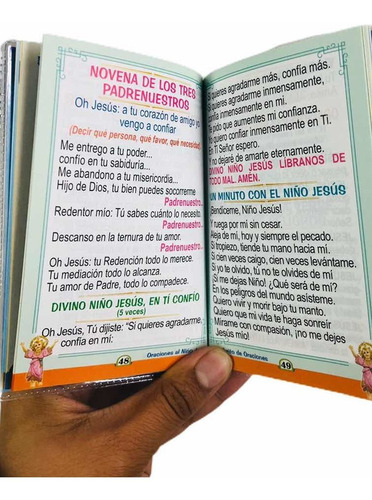 NOVENA DE LOS TRES
PADRENUESTROS
Oh Jesús: a tu corazón de amigo yo
vengo a confiar
(Decir qué persona, qué favor, qué necesidad)
Me entrego a tu poder...
confío en tu sabiduría...
Me abandono a tu misericordia...
Hijo de Dios, tu bien puedes socorrerme
Padrenuestro...
Redentor mío: Tú sabes cuánto lo necesito.
Padrenuestro...
Descanso en la ternura de tu amor.
Padrenuestro...
Oh Jesús: tu Redención todo lo merece.
Tu mediación todo lo alcanza.
Tu amor de Padre, todo lo compadece.
DIVINO NIÑO JESÚS, EN TÍ CONFÍO
(5 veces)
Oh Jesús, Tú dijiste: "Si quieres agradarme,
confía en mí:
48
Oraciones al Niño
Si quieres agradarme más, confía más.
Si quieres agradarme inmensamente,
confía inmensamente en mí.
pido que aumentes mi confianza.
quiero confiar inmensamente en Ti.
En Ti Señor espero.
no dejaré de amarte eternamente.
DIVINO NIÑO JESÚS LIBRANOS DE
TODO MAL. AMEN.
UN MINUTO CON EL NIÑO JESÚS
¡Bendíceme, Niño Jesús!
Y ruega por mí sin cesar.
Aleja de mí, hoy y siempre el pecado.
Si tropiezo, tiende tu mano hacia mí.
Si cien veces caigo, cien veces levántame.
Si yo te olvido, tú no te olvides de mí
¡Si me dejas Niño! ¿Qué será de mí?
En los peligros del mundo asísteme.
Quiero vivir y morir bajo tu manto.
Quiero que mi vida te haga sonreír
Mírame con compasión, ¡no me dejes
Jesús mío!
de Oraciones
49